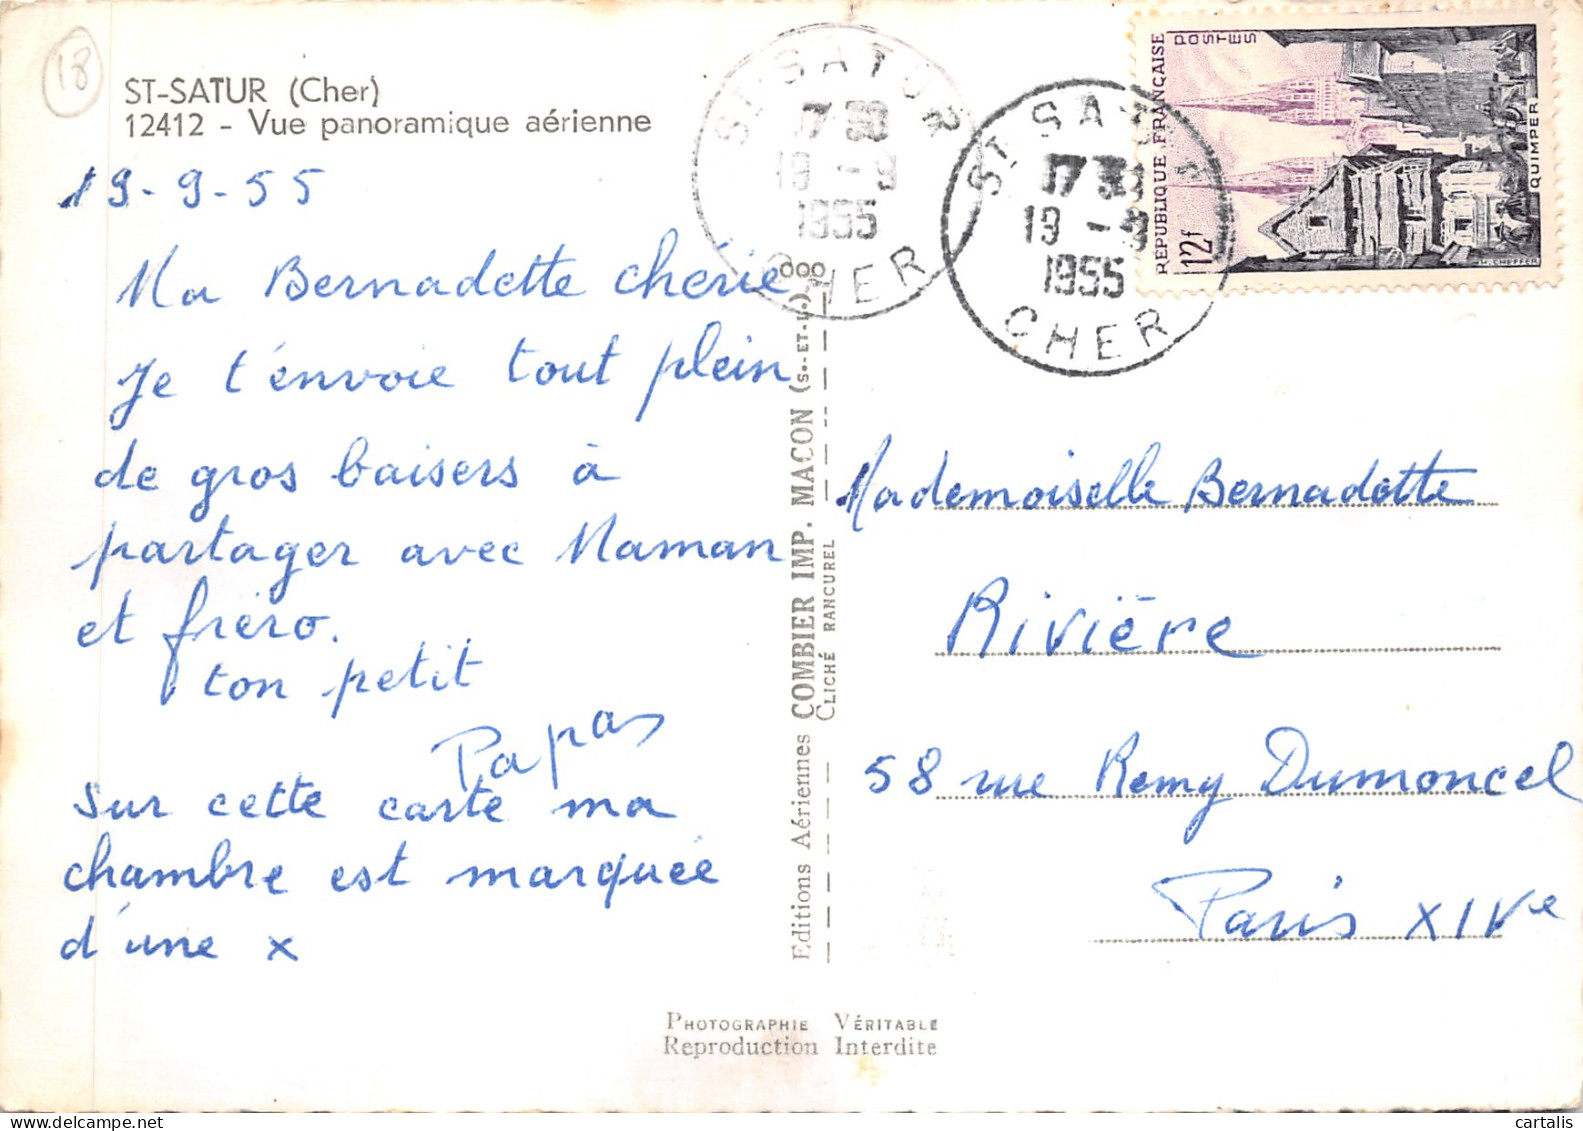 18
ST-SATUR (Cher)
12412 - Vue panoramique aérienne
19-9-55
Ma Bernadette chérie
Je t'envoie tout plein
de gros baisers à
partager avec Maman
et frèro.
ton petit
Papas
Sur cette carte ma
chambre est marquée
d'une x
Editions Aériennes COMBIER IMP. MACON (S.-ET-L.)
CLICHÉ RANCUREL
PHOTOGRAPHIE VÉRITABLE
Reproduction Interdite
ST SATUR
17 30
19 - 9
1955
CHER
ST SATUR
17 30
19 - 9
1955
CHER
REPUBLIQUE FRANÇAISE
POSTES
12f
QUIMPER
Mademoiselle Bernadette
Rivière
58 rue Remy Dumoncel
Paris XIVe
cartalis